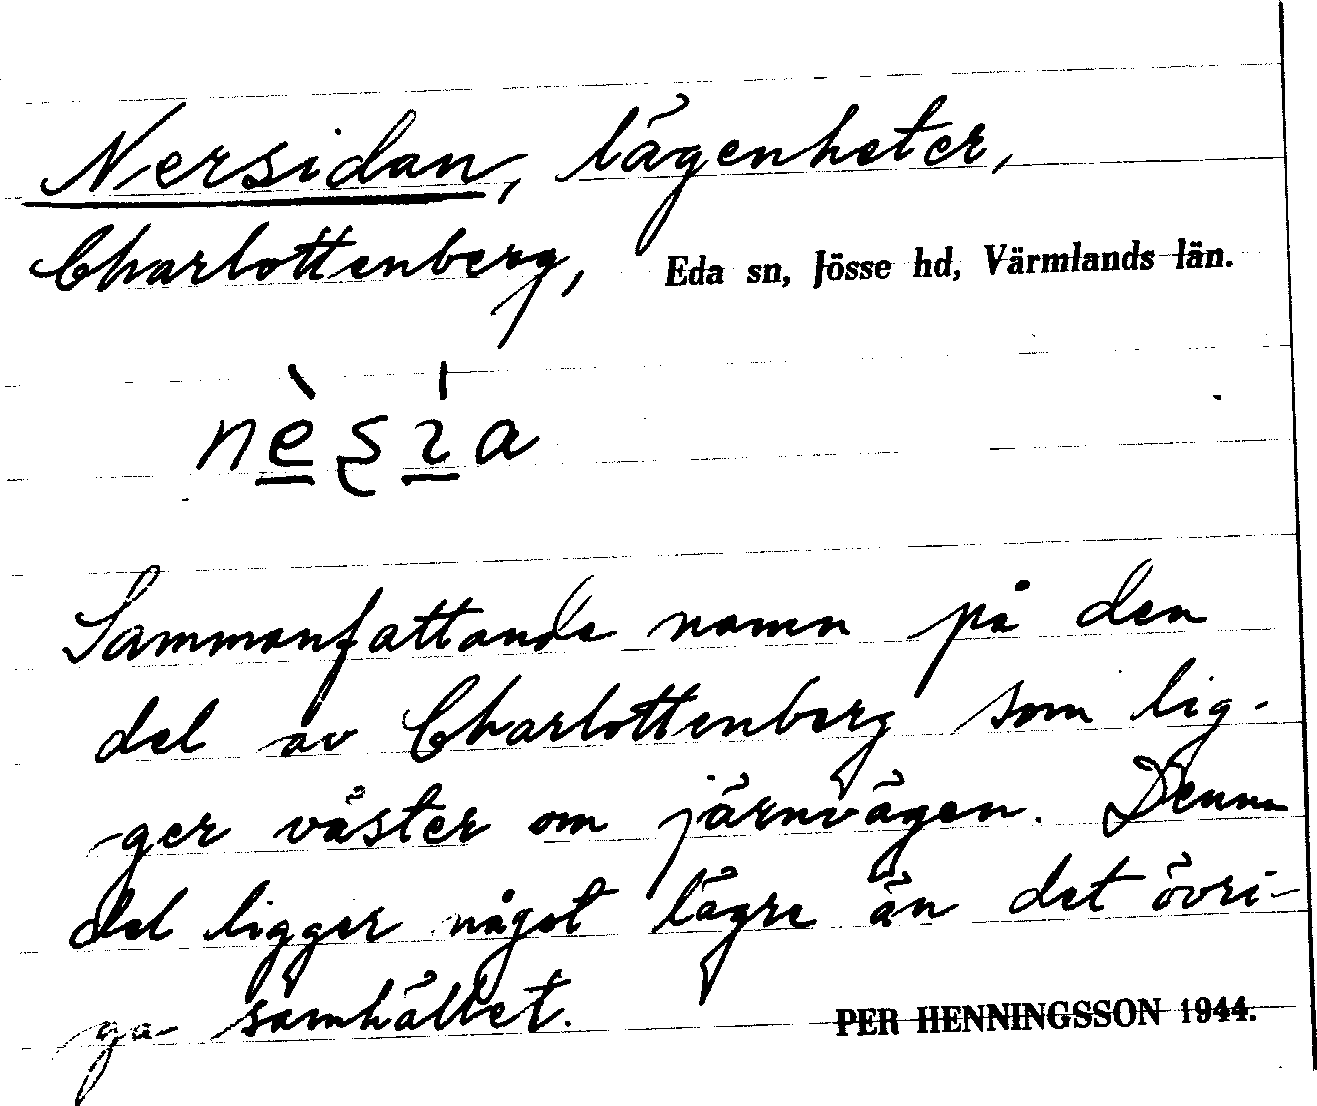 Nersidan, lägenheter,
Charlottenberg, Eda sn, Jösse hd, Värmlands län.
nèsı̍a
Sammanfattande namn på den
del av Charlottenberg som lig-
ger väster om järnvägen. Denna
del ligger något lägre än det övri-
ga samhället.
PER HENNINGSSON 1944.